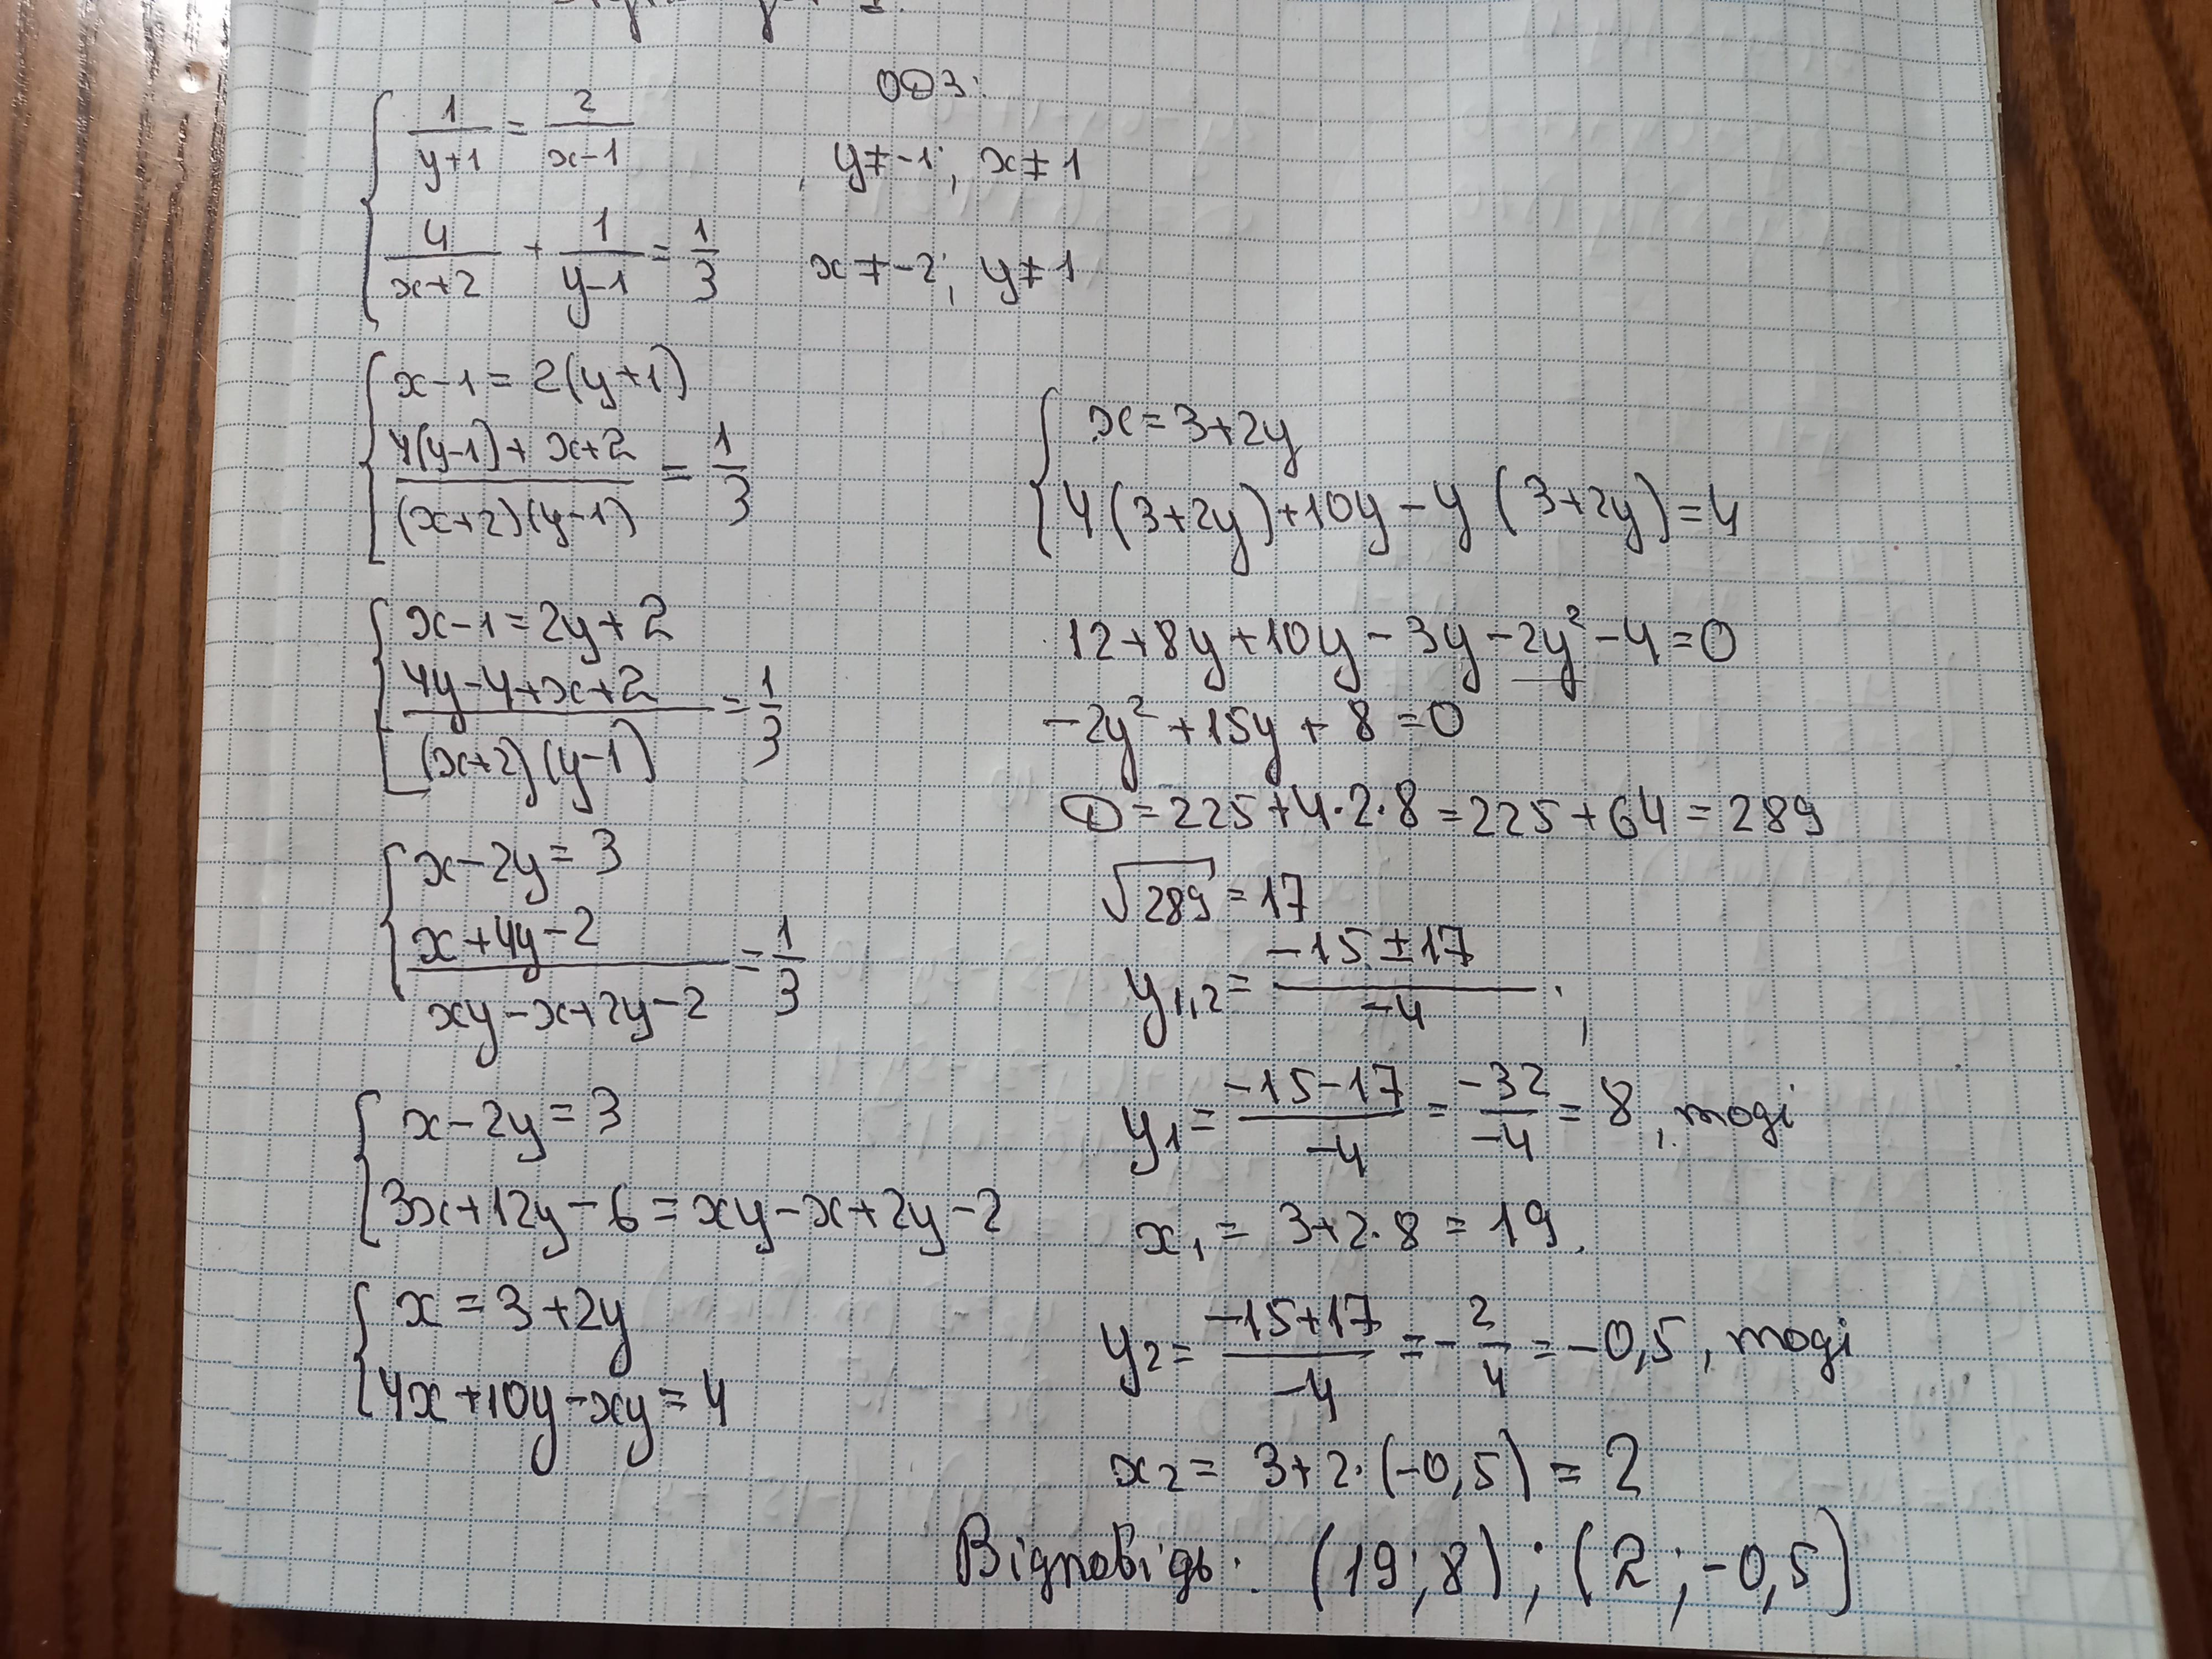 ОДЗ:
{ 1/(y+1) = 2/(x-1) , y≠-1; x≠1
4/(x+2) + 1/(y-1) = 1/3 x≠-2; y≠1
{ x-1=2(y+1)
(4(y-1)+x+2)/((x+2)(y-1)) = 1/3
{ x-1=2y+2
(4y-4+x+2)/((x+2)(y-1)) = 1/3
{ x-2y=3
(x+4y-2)/(xy-x+2y-2) = 1/3
{ x-2y=3
3x+12y-6=xy-x+2y-2
{ x=3+2y
4x+10y-xy=4
{ x=3+2y
4(3+2y)+10y-y(3+2y)=4
12+8y+10y-3y-2y²-4=0
-2y²+15y+8=0
D=225+4·2·8=225+64=289
√289=17
y1,2=(-15±17)/-4;
y1=(-15-17)/-4=-32/-4=8, тоді
x1=3+2·8=19.
y2=(-15+17)/-4=-2/4=-0,5, тоді
x2=3+2·(-0,5)=2
Відповідь: (19;8);(2;-0,5)